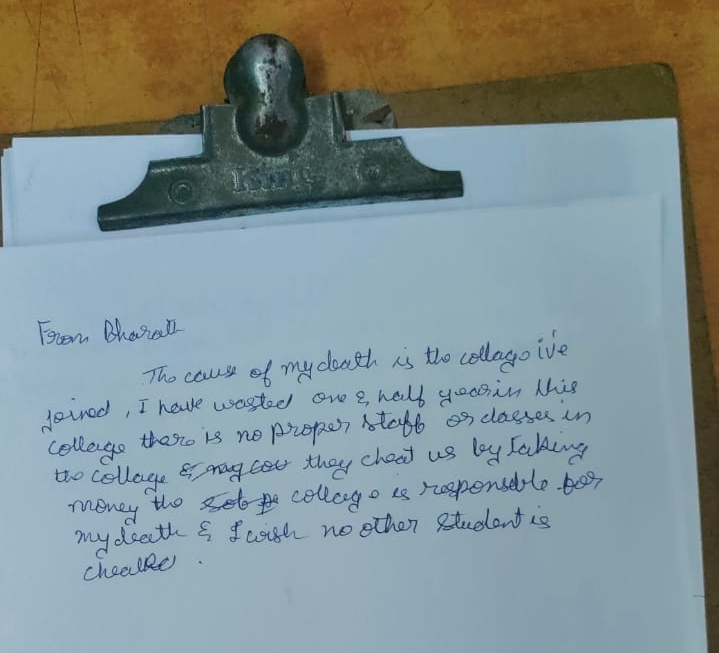 From Bharath
The cause of my death is the collage ive
joined, I have wasted one & half year in this
collage there is no proper staff or classes in
the collage & they cheat us by taking
money the collage is responsible for
my death & I wish no other student is